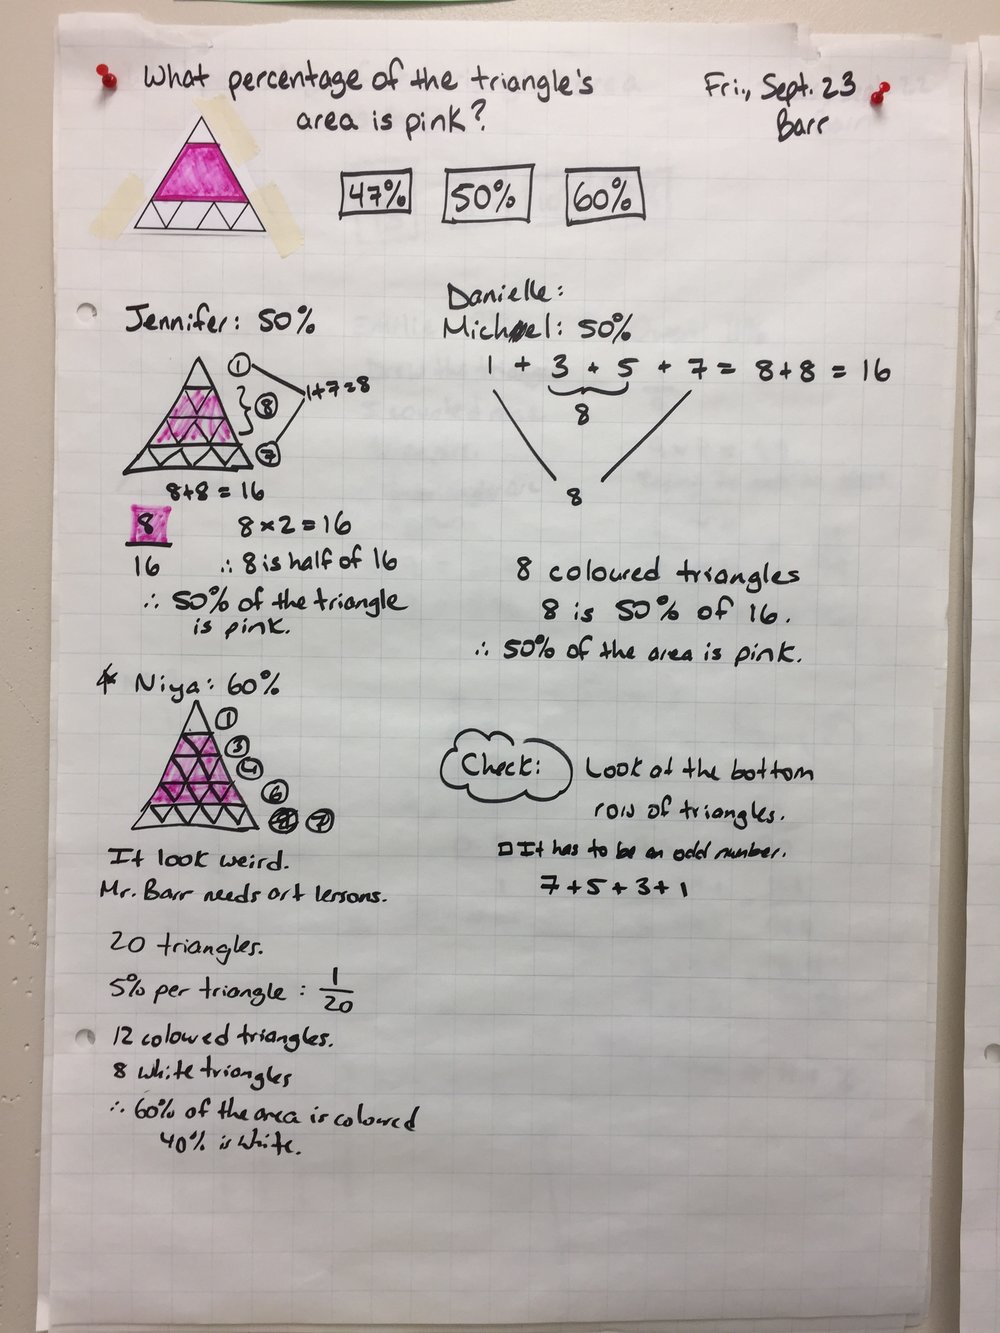 What percentage of the triangle's
area is pink?
Fri., Sept. 23
Barr
47% 50% 60%
Jennifer: 50%
1
8
7
1+7=8
8+8=16
8
16
8×2=16
∴ 8 is half of 16
∴ 50% of the triangle
is pink.
Danielle:
Michael: 50%
1 + 3 + 5 + 7 = 8+8 = 16
8
8
8 coloured triangles
8 is 50% of 16.
∴ 50% of the area is pink.
Niya: 60%
1
3
4
6
7
It look weird.
Mr. Barr needs art lessons.
20 triangles.
5% per triangle: 1/20
12 coloured triangles.
8 white triangles
∴ 60% of the area is coloured
40% is white.
Check: Look at the bottom
row of triangles.
It has to be an odd number.
7+5+3+1